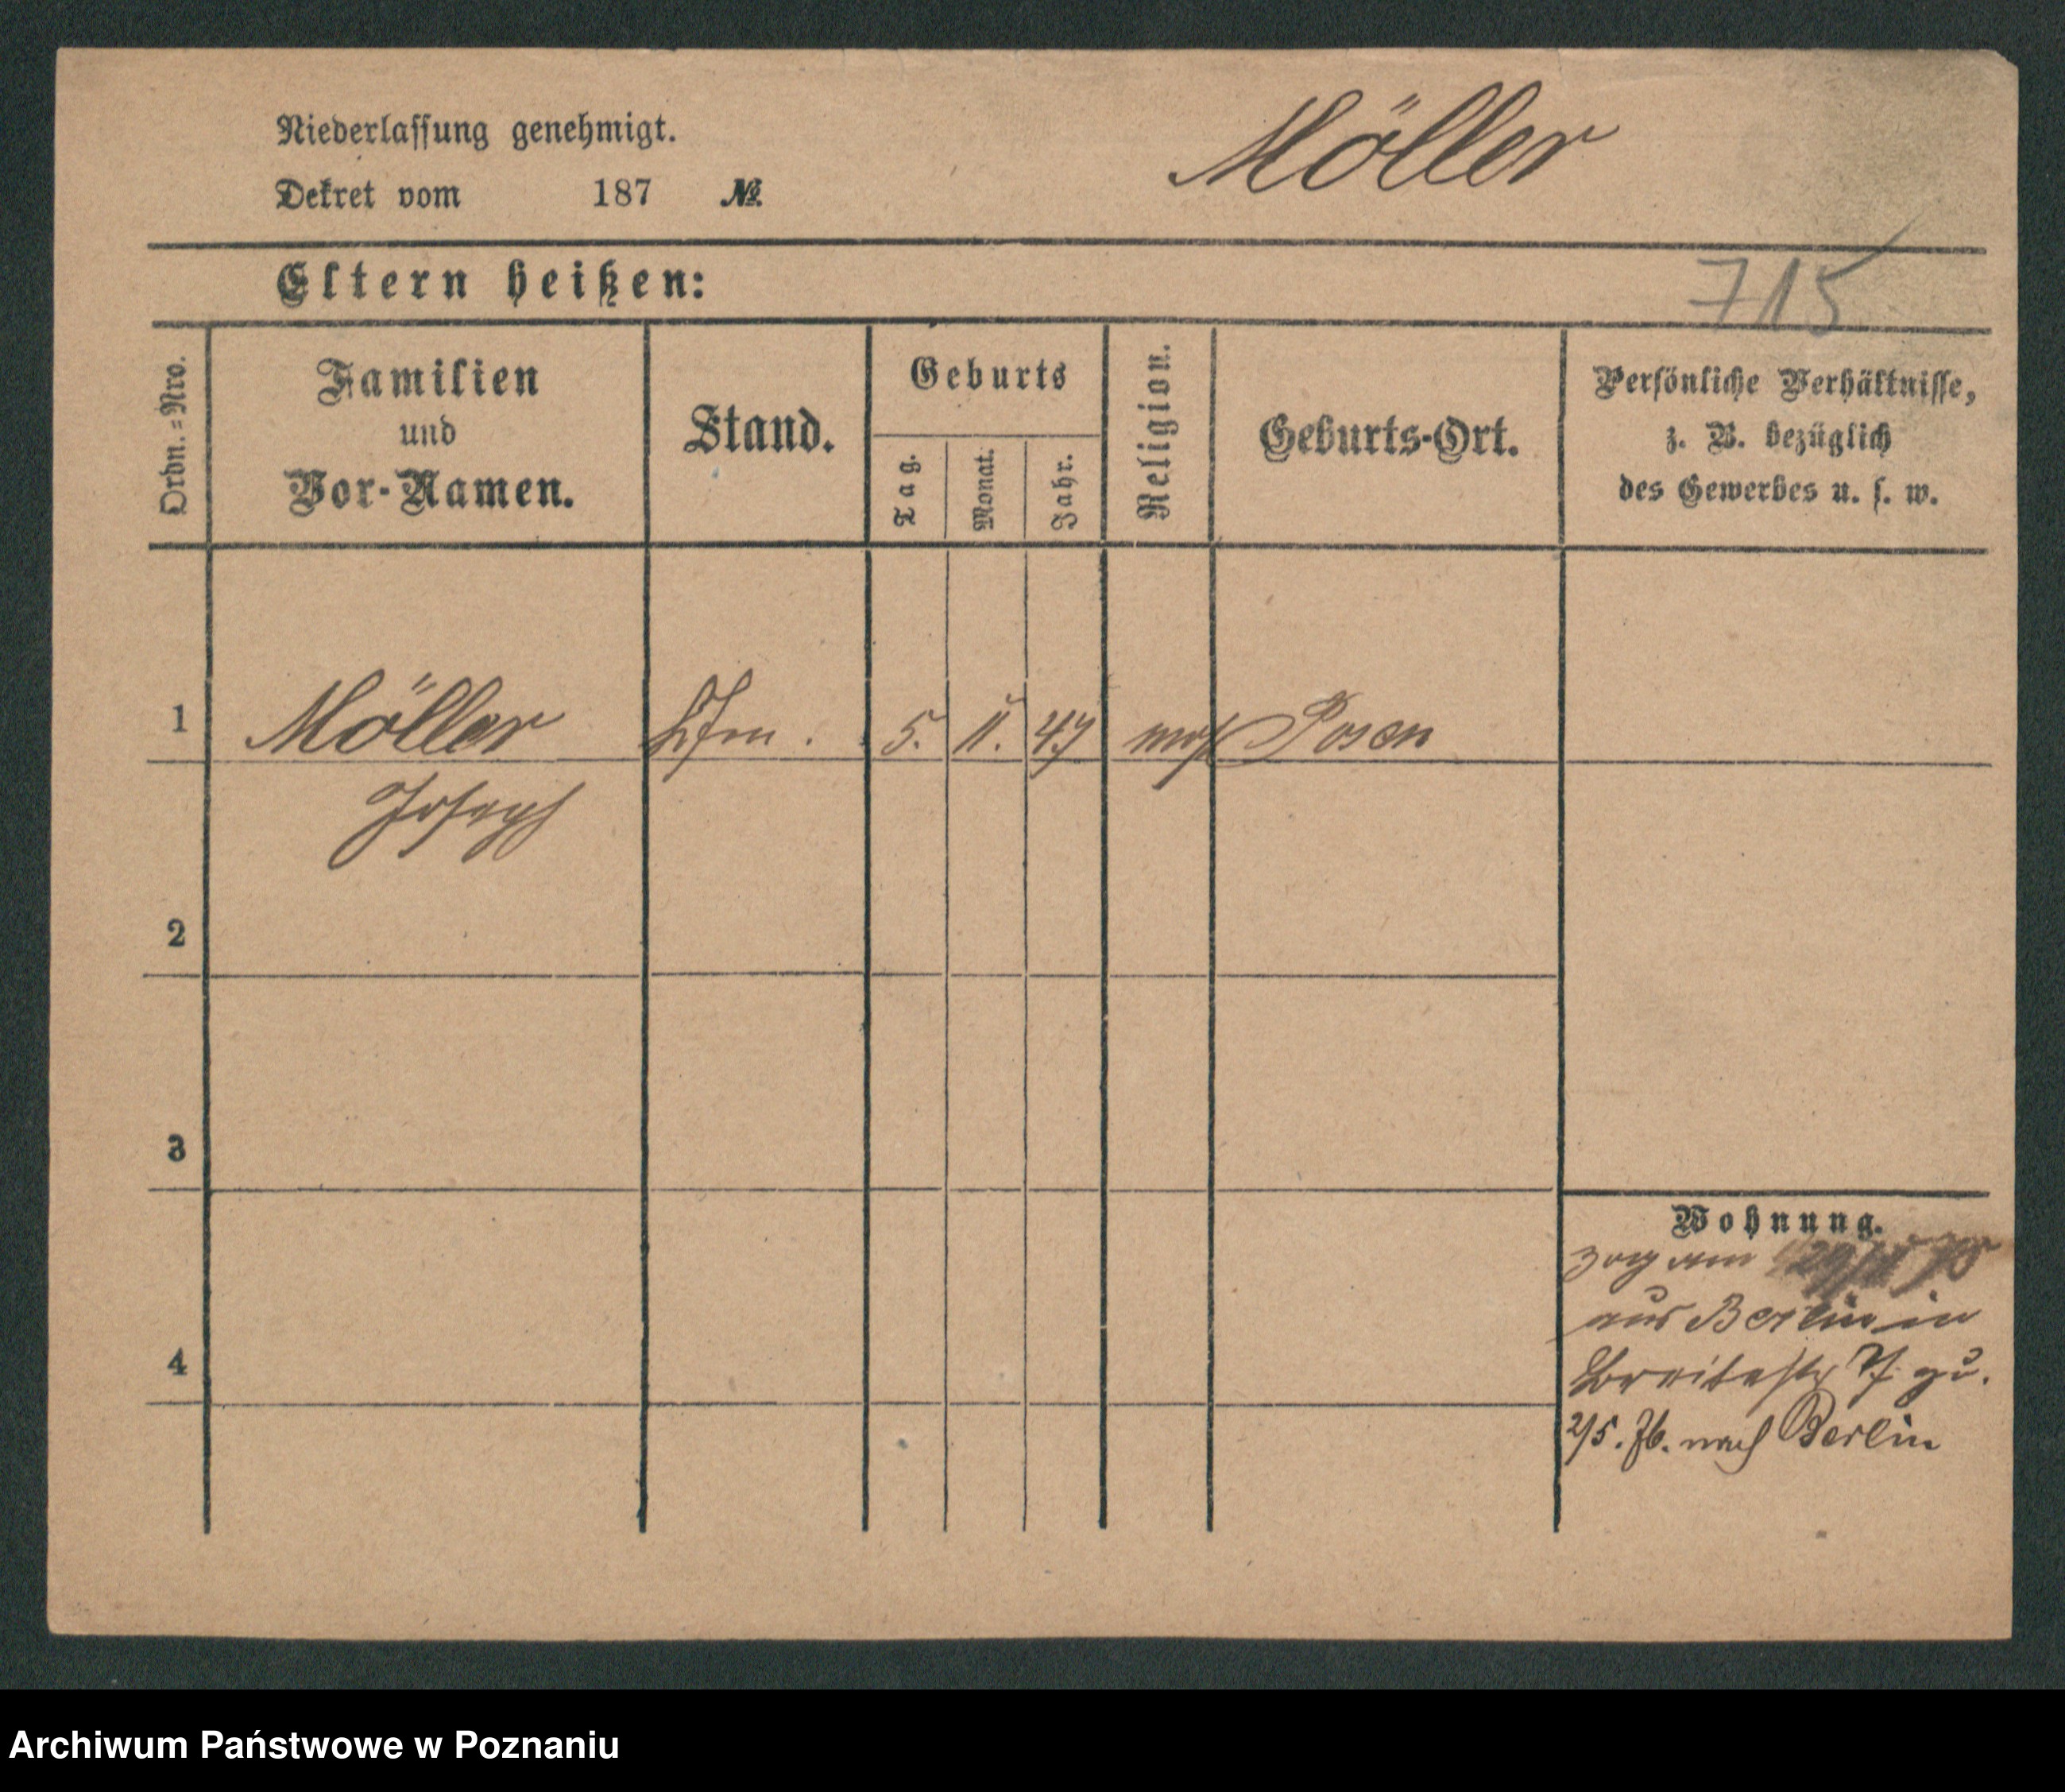 Niederlassung genehmigt.
Möller
Dekret vom 187 №
Eltern heißen:
715
Ordn.=Nro.
Familien
und
Vor-Namen.
Stand.
Geburts
Tag.
Monat.
Jahr.
Religion.
Geburts-Ort.
Persönliche Verhältnisse,
z. B. bezüglich
des Gewerbes u. s. w.
1 Möller Kfm. 5. 11. 47 mos Posen
Joseph
2
3
4
Wohnung.
zog am 75
aus Berlin in
Breitestr 7 zu.
2/5. 76. nach Berlin
Archiwum Państwowe w Poznaniu